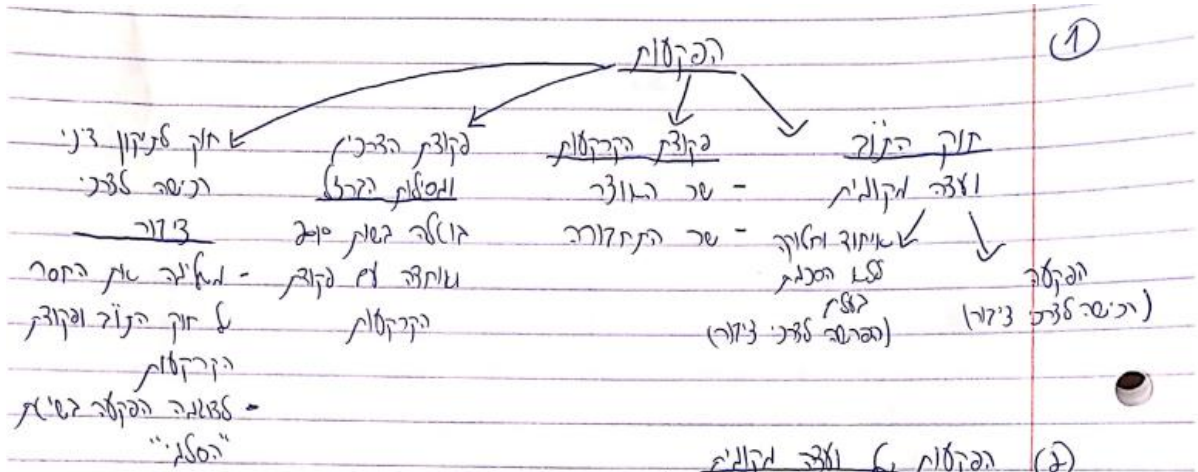 ①
הפקעות
חוק התו"ב
ועדה מקומית
איחוד וחלוקה
ללא הסכמת
בעלים
(הפרשה לצרכי ציבור)
הפקעה
(רכישה לצרכי ציבור)
פקודת הקרקעות
- שר האוצר
- שר התחבורה
פקודת הדרכים
ומסילות הברזל
בוטלה בשנת
ואוחדה עם פקודת
הקרקעות
חוק לתיקון דיני
רכישה לצרכי
ציבור
- משלימה את החסר
של חוק התו"ב ופקודת
הקרקעות
- לדוגמה הפקעה בשיטת
"הסלמי"
(2) הפקעות של ועדה מקומית